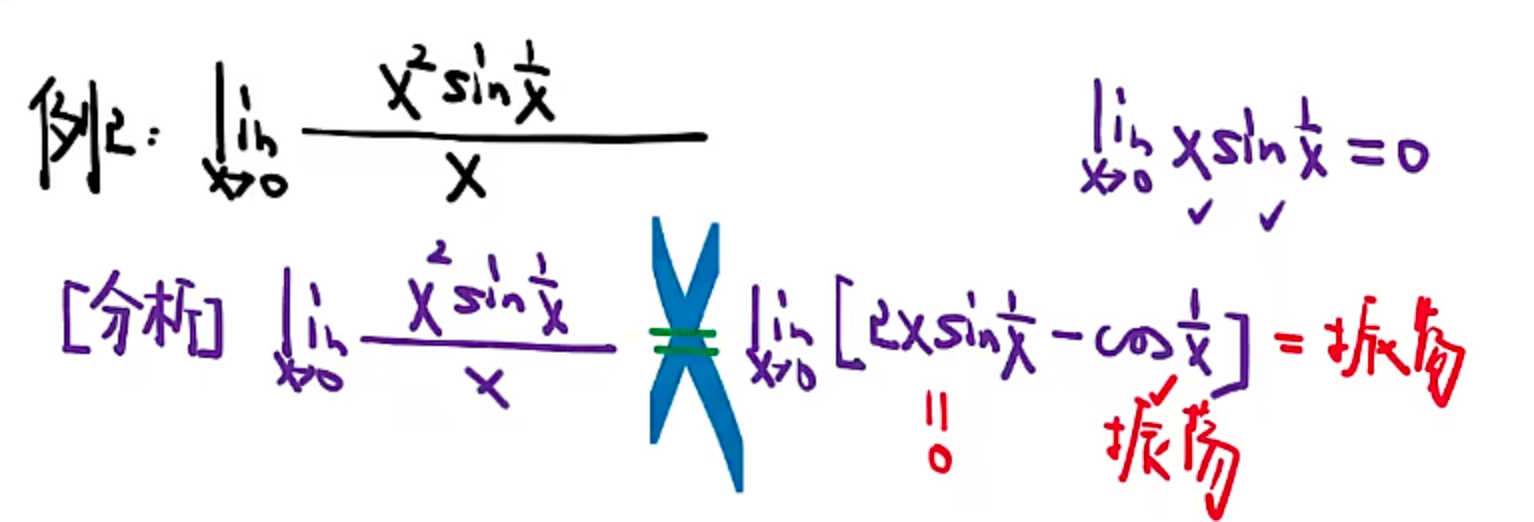 例2: lim x→0 x² sin 1/x / x
lim x→0 x sin 1/x = 0
✓ ✓
[分析] lim x→0 x² sin 1/x / x = lim x→0 [2x sin 1/x - cos 1/x] = 振荡
✓
= 0
振荡